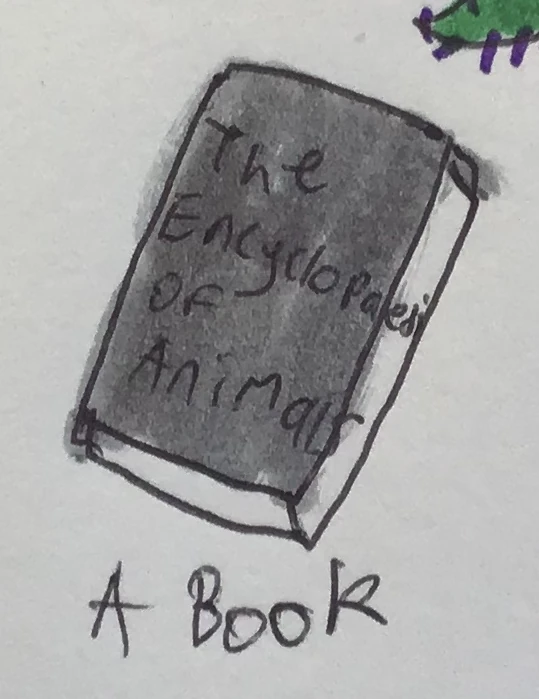 The
Encyclopaedi
OF
Animals
A Book